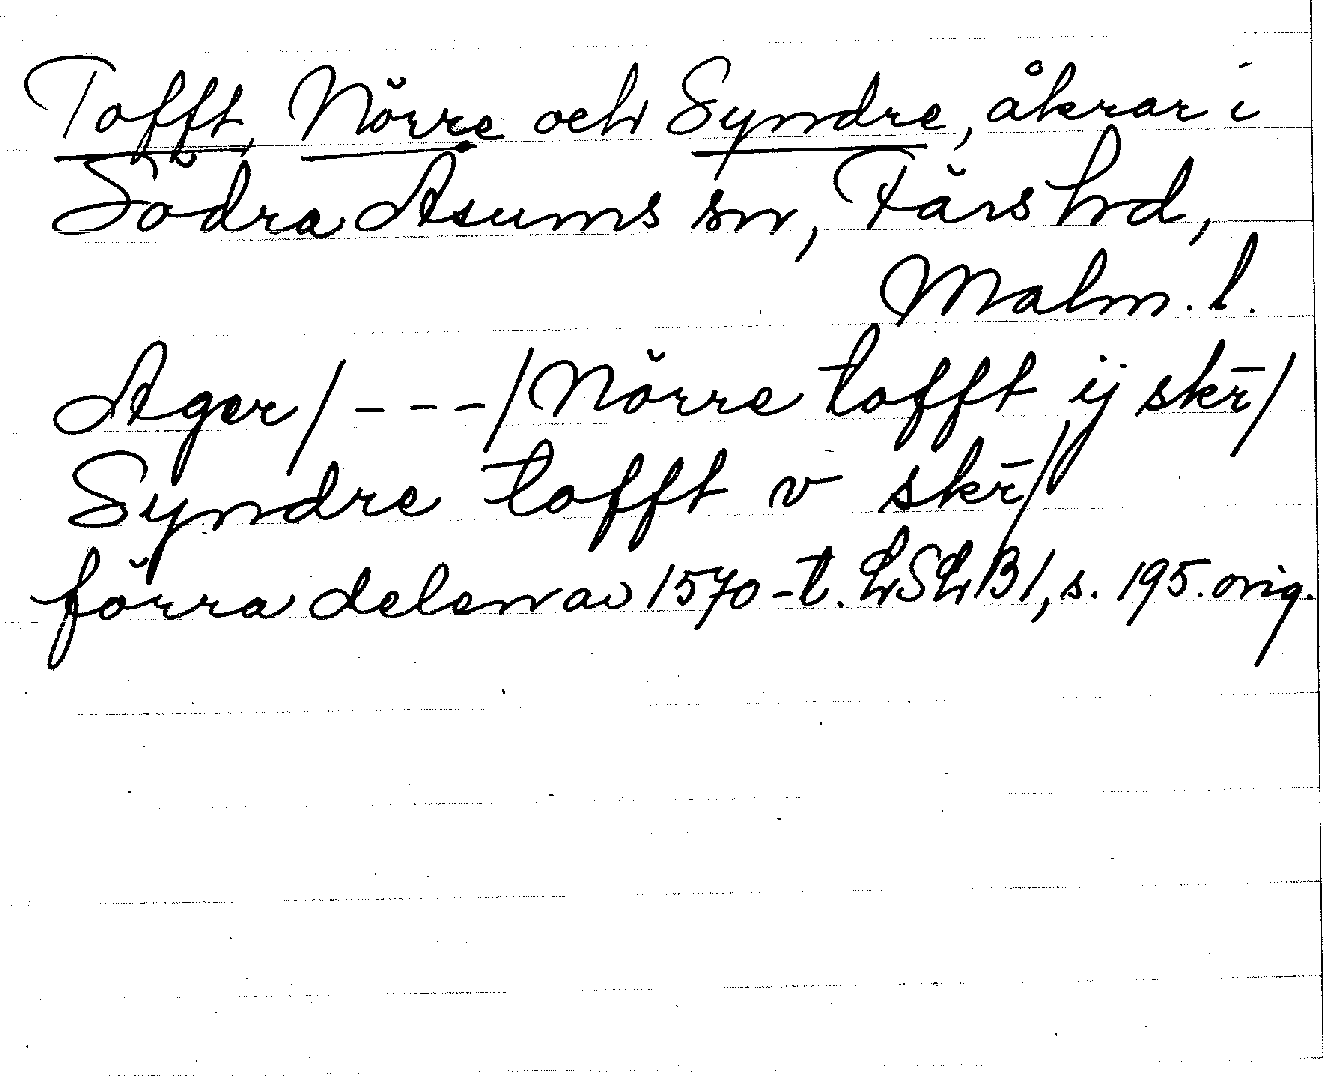 Tofft, Nörre och Syndre, åkrar i
Södra Åsums sn, Färs hd,
Malm. l.
Ager/ - - - / Nörre tofft ij skr̄/
Syndre tofft v skr̄/
förra delen av 1570-t. LSLB1, s. 195. orig.